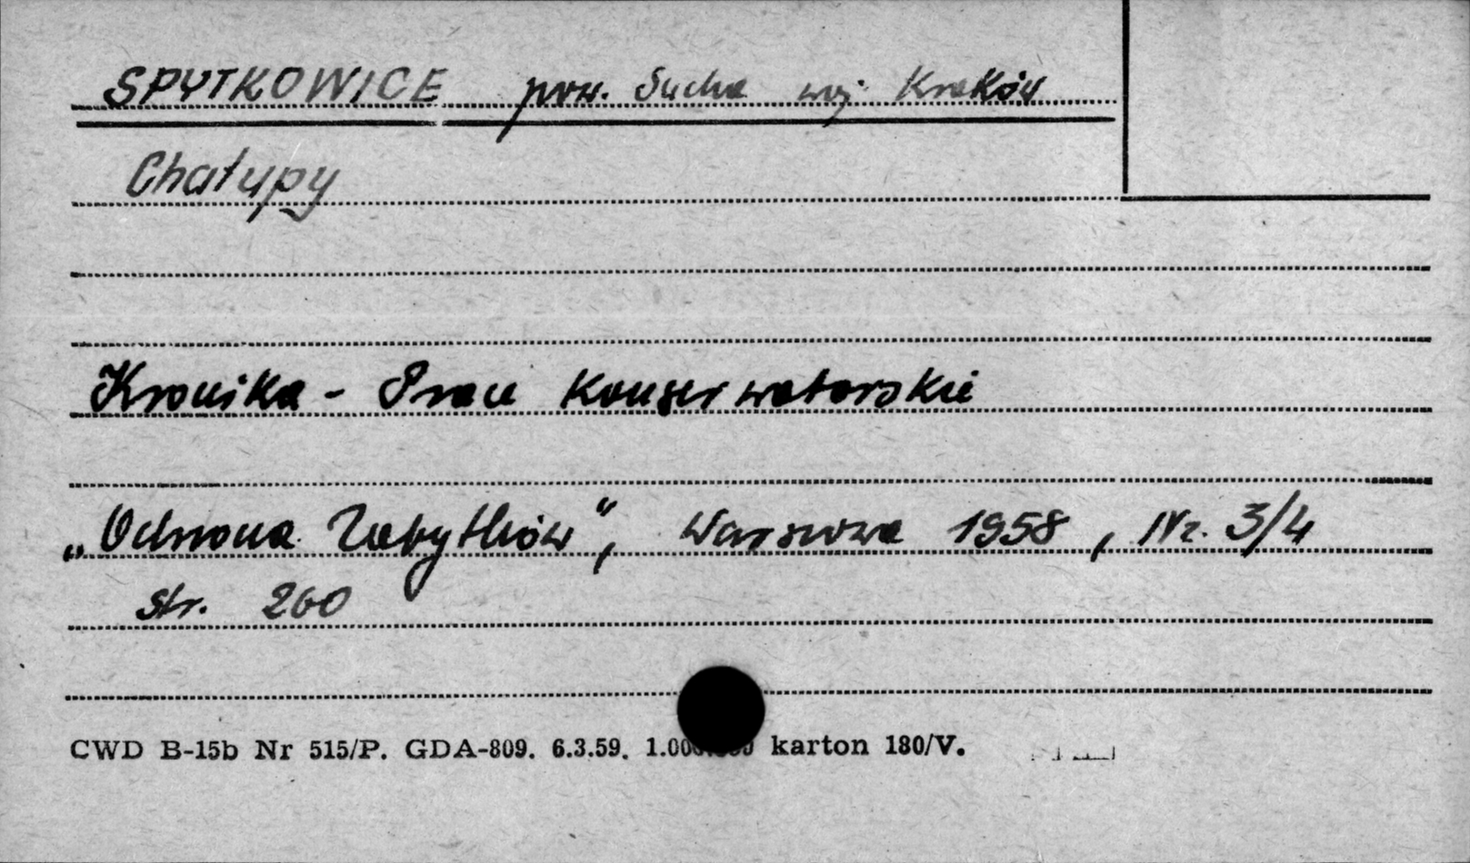 SPYTKOWICE pow. Sucha woj. Kraków
Chałupy
Kronika - Prace Konserwatorskie
„Ochrona Zabytków", Warszawa 1958, Nr. 3/4
str. 260
CWD B-15b Nr 515/P. GDA-809. 6.3.59. karton 180/V.